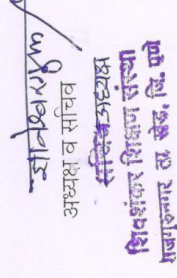 अध्यक्ष व सचिव
सचिव/अध्यक्ष
शिवशंकर शिक्षण संस्था
ता. खेड, जि. पुणे